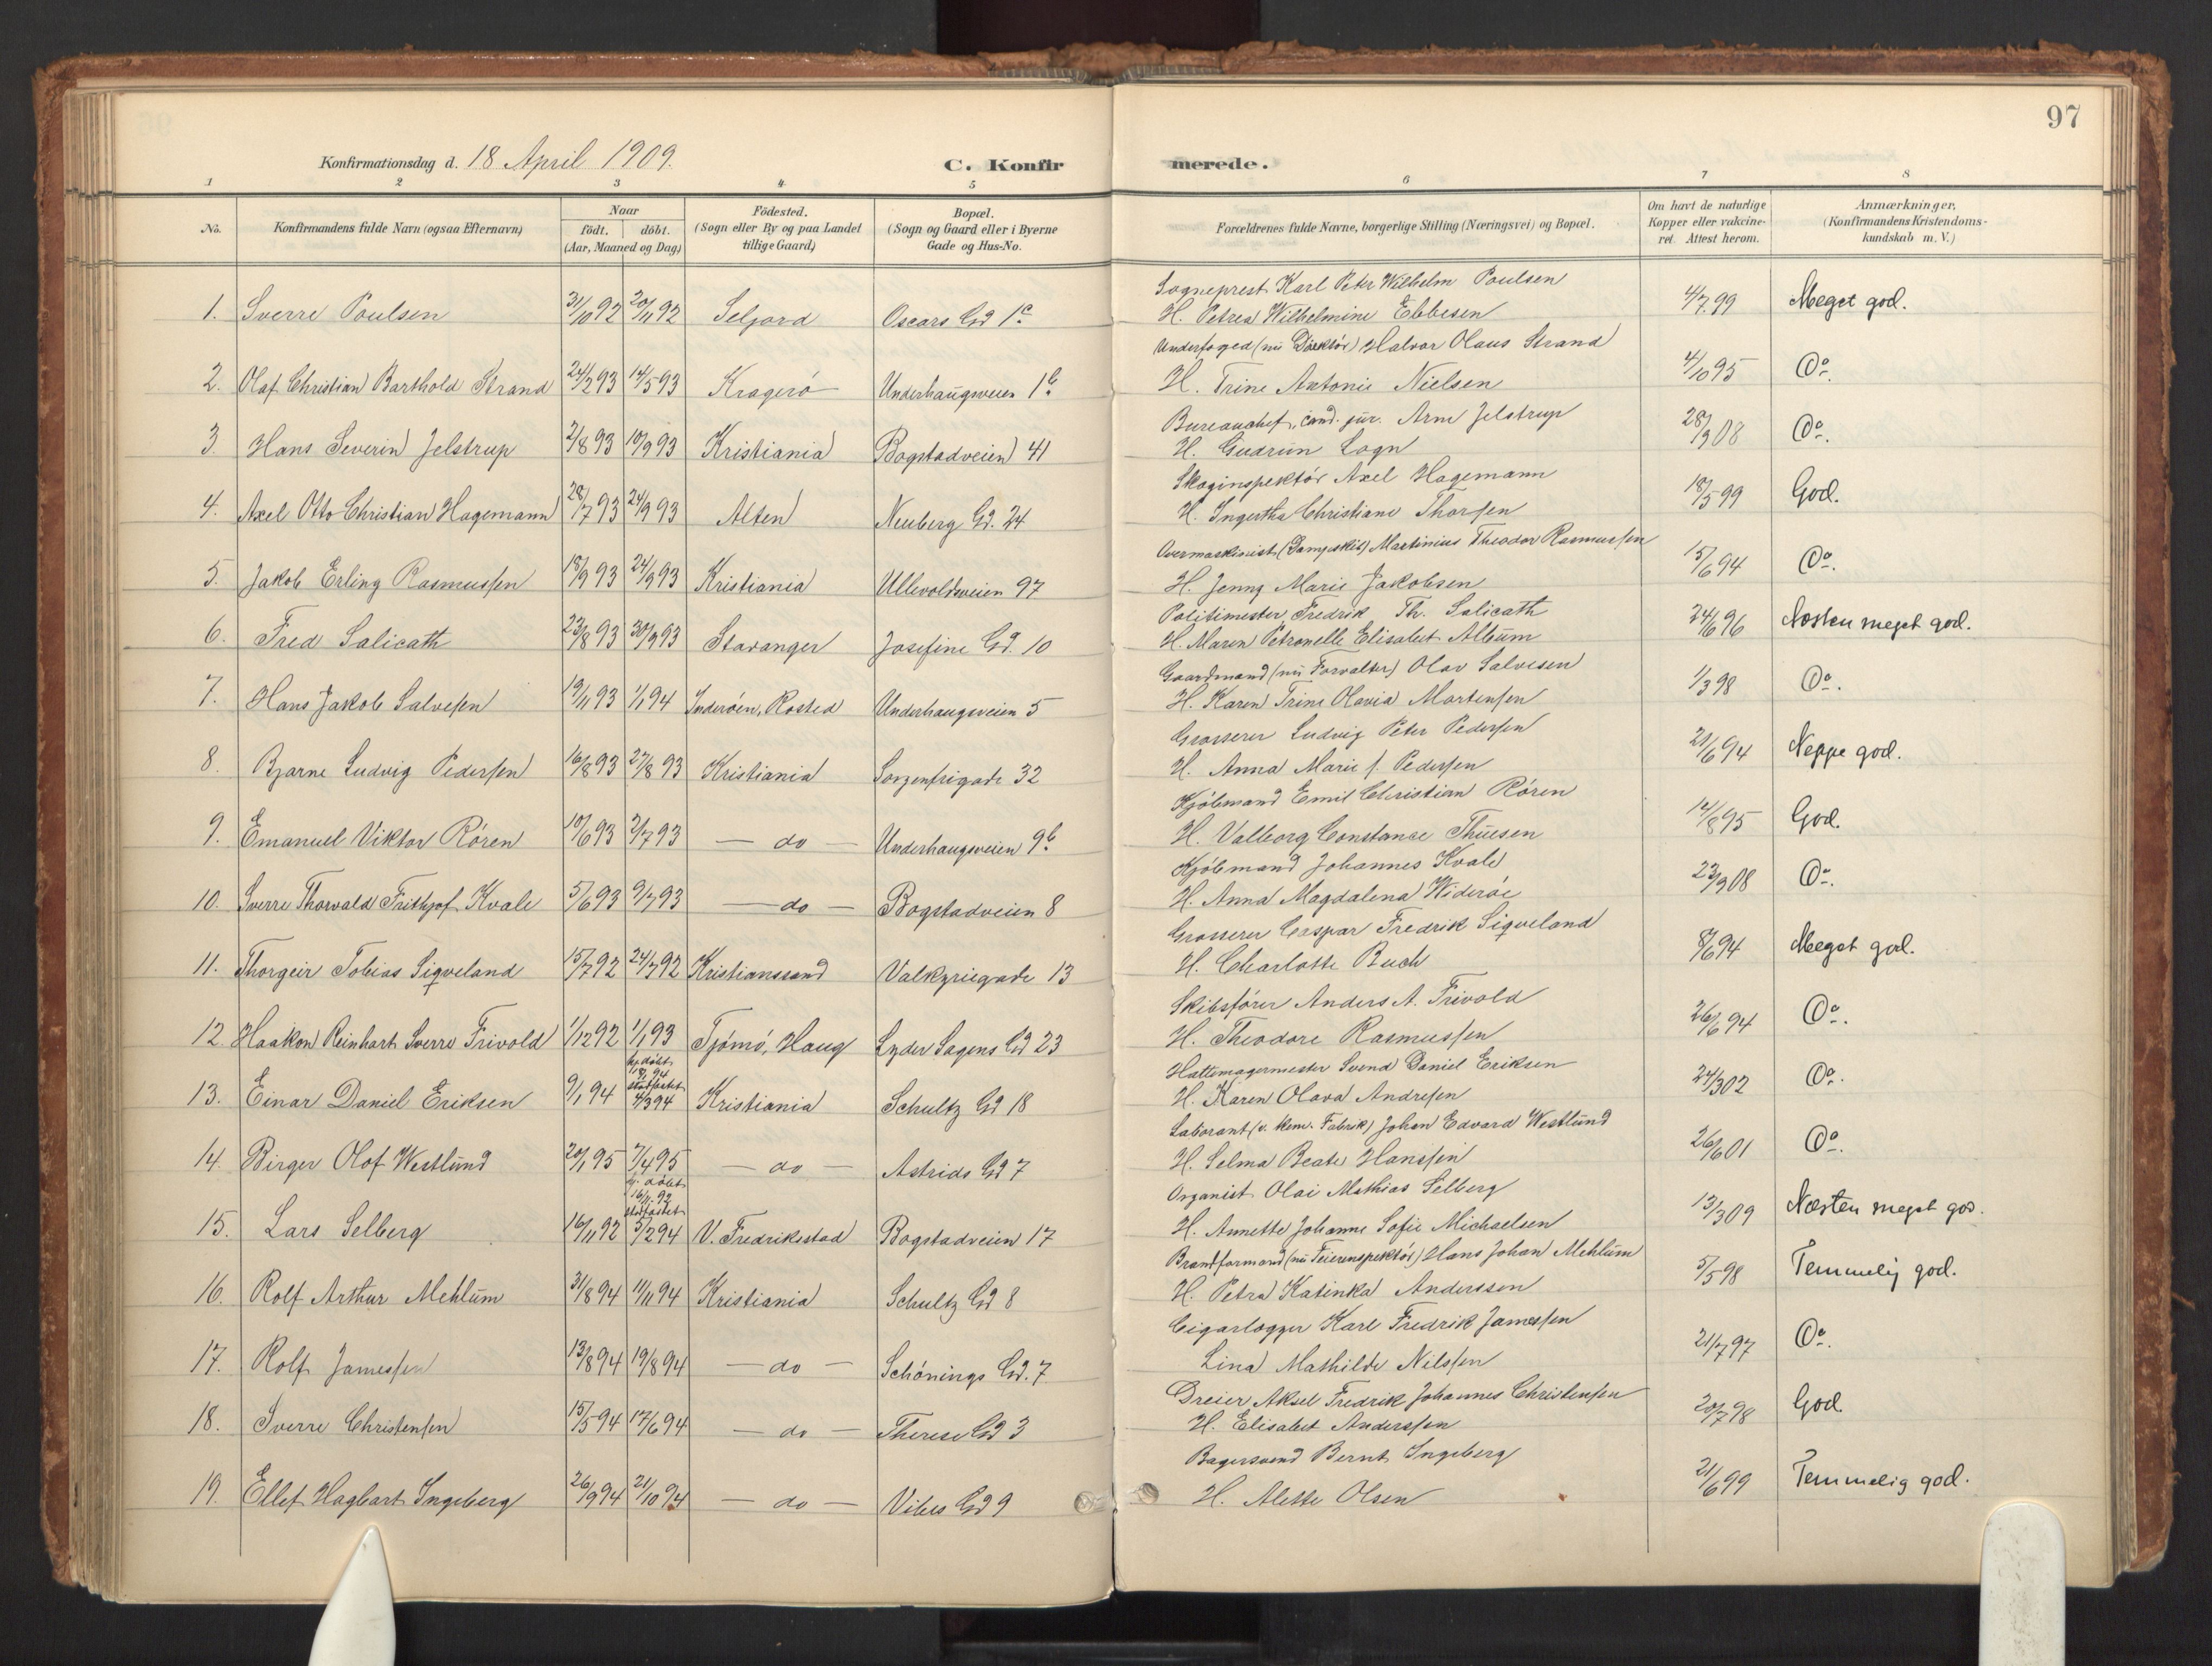 97
Konfirmationsdag d. 18 April 1909.
C. Konfirmerede.
1 2 3 4 5 6 7 8
No.
Konfirmandens fulde Navn (ogsaa Efternavn)
Naar
födt. döbt.
(Aar, Maaned og Dag)
Födested.
(Sogn eller By og paa Landet
tillige Gaard)
Bopæl.
(Sogn og Gaard eller i Byerne
Gade og Hus-No.
Forældrenes fulde Navne, borgerlige Stilling (Næringsvei) og Bopæl.
Om havt de naturlige
Kopper eller vakcine-
ret. Attest herom.
Anmærkninger,
(Konfirmandens Kristendoms-
kundskab m. V.)
Sogneprest Karl Peter Wilhelm Poulsen
1. Sverre Poulsen 31/10 92 20/11 92 Seljord Oscars Gd 1c H. Petrea Wilhelmine Ebbesen 4/7 99 Meget god.
Underfoged (nu Direktör) Halvor Olaus Strand
2. Olaf Christian Barthold Strand 24/2 93 14/5 93 Kragerö Underhaugsveien 1b H. Trine Antonie Nielsen 4/10 95 Do.
Bureauchef, cand. jur. Arne Jelstrup
3. Hans Severin Jelstrup 2/8 93 10/9 93 Kristiania Bogstadveien 41 H. Gudrun Logn 28/3 08 Do.
Skoginspektör Axel Hagemann
4. Axel Otto Christian Hagemann 28/7 93 24/9 93 Alten Neuberg Gd. 24 H. Ingertha Christiane Thorsen 18/5 99 God.
Overmaskinist (Dampskib) Martinius Theodor Rasmussen
5. Jakob Erling Rasmussen 18/9 93 24/9 93 Kristiania Ullevoldsveien 97 H. Jenny Marie Jakobsen 15/6 94 Do.
Politimester Fredrik Th. Salicath
6. Fred Salicath 23/8 93 30/9 93 Stavanger Josefine Gd. 10 H. Maren Petronelle Elisabet Album 24/6 96 Næsten meget god.
Gaardmand (nu Forvalter) Olav Salvesen
7. Hans Jakob Salvesen 19/11 93 1/1 94 Inderöen, Rosted Underhaugsveien 5 H. Karen Trine Olavia Martensen 1/3 98 Do.
Grosserer Ludvig Peter Pedersen
8. Bjarne Ludvig Pedersen 16/8 93 27/8 93 Kristiania Sorgenfrigade 32 H. Anna Marie f. Pedersen 21/6 94 Neppe god.
Kjöbmand Emil Christian Rören
9. Emanuel Viktor Rören 10/6 93 2/7 93 — do — Underhaugsveien 9b H. Valborg Constance Thuesen 14/8 95 God.
Kjöbmand Johannes Kvale
10. Sverre Thorvald Frithjof Kvale 5/6 93 9/7 93 — do — Bogstadveien 8 H. Anna Magdalena Wideröe 23/3 08 Do.
Grosserer Caspar Fredrik Siqveland
11. Thorgeir Tobias Siqveland 15/7 92 24/7 92 Kristianssand Valkyriegade 13 H. Charlotte Buch 8/6 94 Meget god.
Skibsförer Anders A. Frivold
12 Haakon Reinhart Sverre Frivold 1/12 92 1/1 93 Tjömö, Haug Lyder Sagens Gd 23 H. Theodore Rasmussen 26/6 94 Do.
Hattemagermester Svend Daniel Eriksen
13. Einar Daniel Eriksen 9/1 94 hj. döbt 94 stadfæstet 4/3 94 Kristiania Schultz Gd 18 H. Karen Olava Andresen 24/3 02 Do.
Laborant (v. kem. Fabrik) Johan Edvard Westlund
14. Birger Olof Westlund 20/1 95 7/4 95 — do — Astrids Gd 7 H. Selma Beate Hanssen 26/6 01 Do.
Organist Olai Mathias Selberg
15. Lars Selberg 16/11 92 hj. döbt 16/11 92 stadfæstet 5/2 94 V. Fredriksstad Bogstadveien 17 H. Annette Johanne Sofie Michaelsen 13/3 09 Næsten meget god.
Brandformand (nu Feierinspektör) Hans Johan Mehlum
16. Rolf Arthur Mehlum 31/8 94 11/11 94 Kristiania Schultz Gd 8 H. Petra Katinka Anderssen 5/5 98 Temmelig god.
Cigarlægger Karl Fredrik Jamessen
17. Rolf Jamessen 13/8 94 19/8 94 — do — Schönings Gd. 7 Lina Mathilde Nilssen 21/7 97 Do.
Dreier Aksel Fredrik Johannes Christensen
18. Sverre Christensen 15/5 94 17/6 94 — do — Therese Gd 3 H. Elisabet Anderssen 20/7 98 God.
Bagersvend Bernt Ingeberg
19. Ellef Hagbart Ingeberg 26/9 94 21/10 94 — do — Vibes Gd 9 H. Alette Olsen 21/6 99 Temmelig god.